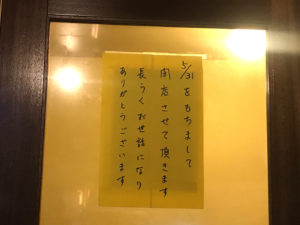 5/31をもちまして
閉店させて頂きます
長らくお世話になり
ありがとうございます